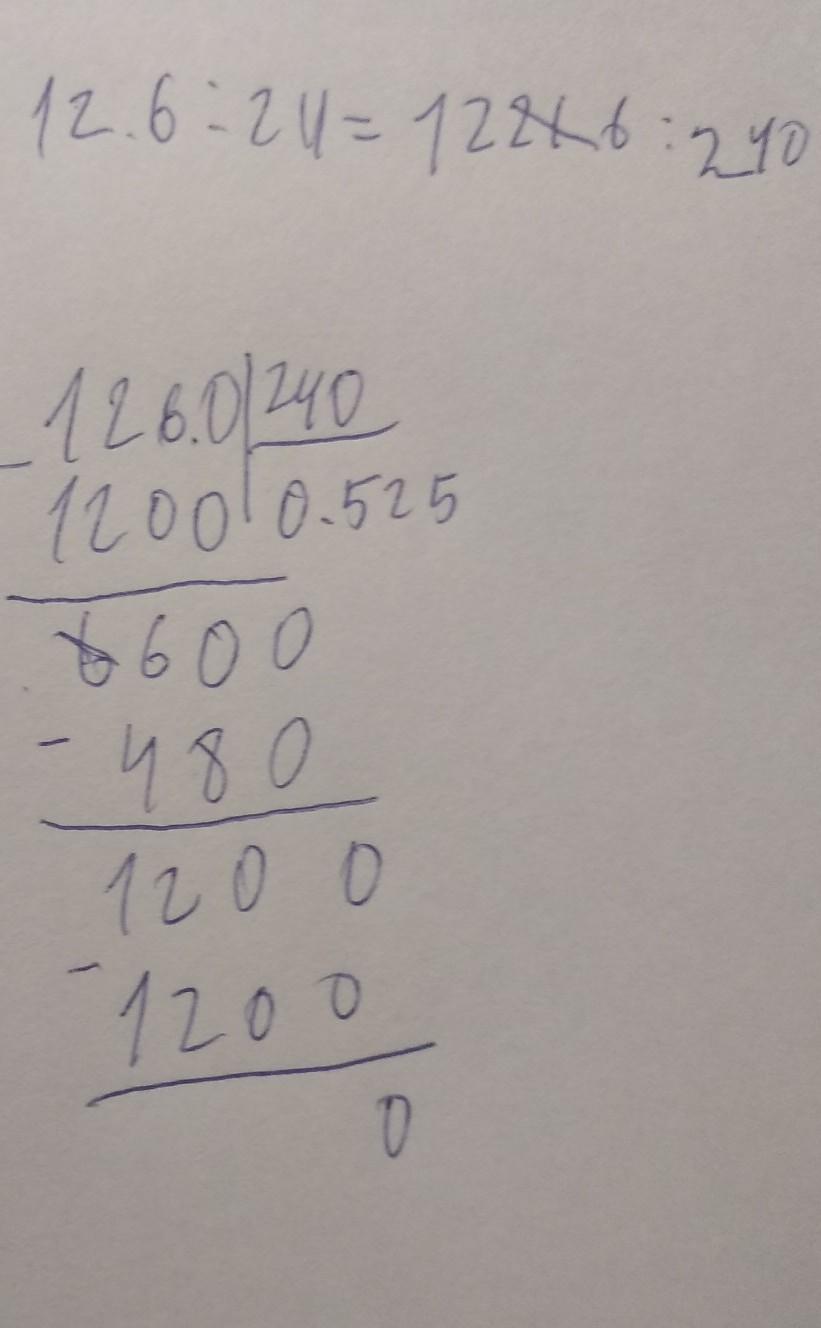 12.6÷24=126:240
126.0|240
-1200|0.525
600
-480
1200
-1200
0